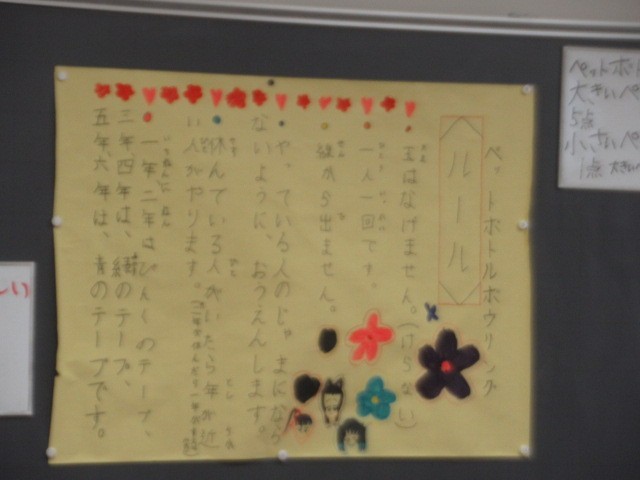 ペットボトルボウリング
ルール
玉はなげません。(けらない)
一人一回です。
線から出ません。
やっている人のじゃまになら
ないように、おうえんします。
休んでいる人がいたら年が近
い人がやります。
一年、二年はぴんくのテープ、
三年、四年は、緑のテープ、
五年、六年は、青のテープです。
ペットボト
大きいペ
5点
小さいペ
1点 大きい
しい